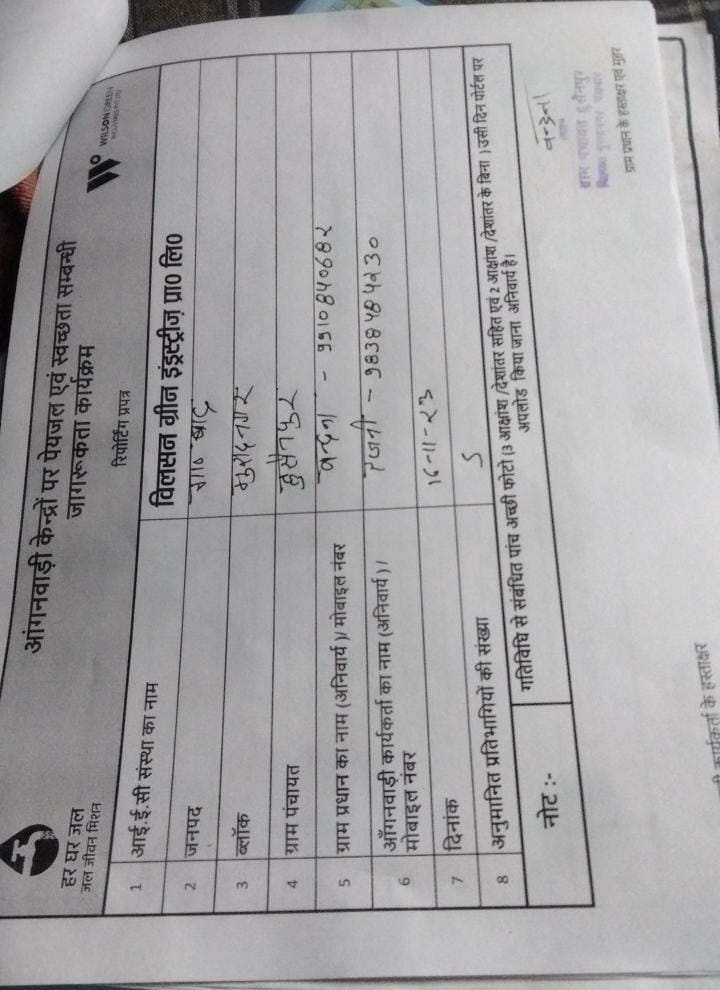 हर घर जल
जल जीवन मिशन
आंगनवाड़ी केन्द्रों पर पेयजल एवं स्वच्छता सम्बन्धी
जागरूकता कार्यक्रम
WILSON GREEN
रिपोर्टिंग प्रपत्र
1 आई.ई.सी संस्था का नाम विलसन ग्रीन इंड्रस्ट्रीज़ प्रा० लि०
2 जनपद गा० बाद
3 ब्लॉक मुरादनगर
4 ग्राम पंचायत हुसैनपुर
5 ग्राम प्रधान का नाम (अनिवार्य )/ मोबाइल नंबर वन्दना - 9910840682
6 आँगनवाड़ी कार्यकर्ता का नाम (अनिवार्य ) /
मोबाइल नंबर रजनी - 9838484230
7 दिनांक 16-11-23
8 अनुमानित प्रतिभागियों की संख्या 5
नोट :- गतिविधि से संबंधित पांच अच्छी फोटो (3 आक्षांश /देशांतर सहित एवं 2 आक्षांश /देशांतर के बिना ) उसी दिन पोर्टल पर
अपलोड किया जाना अनिवार्य है।
वन्दना
ग्राम पंचायत हुसैनपुर
ग्राम प्रधान के हस्ताक्षर एवं मुहर
कार्यकर्ता के हस्ताक्षर